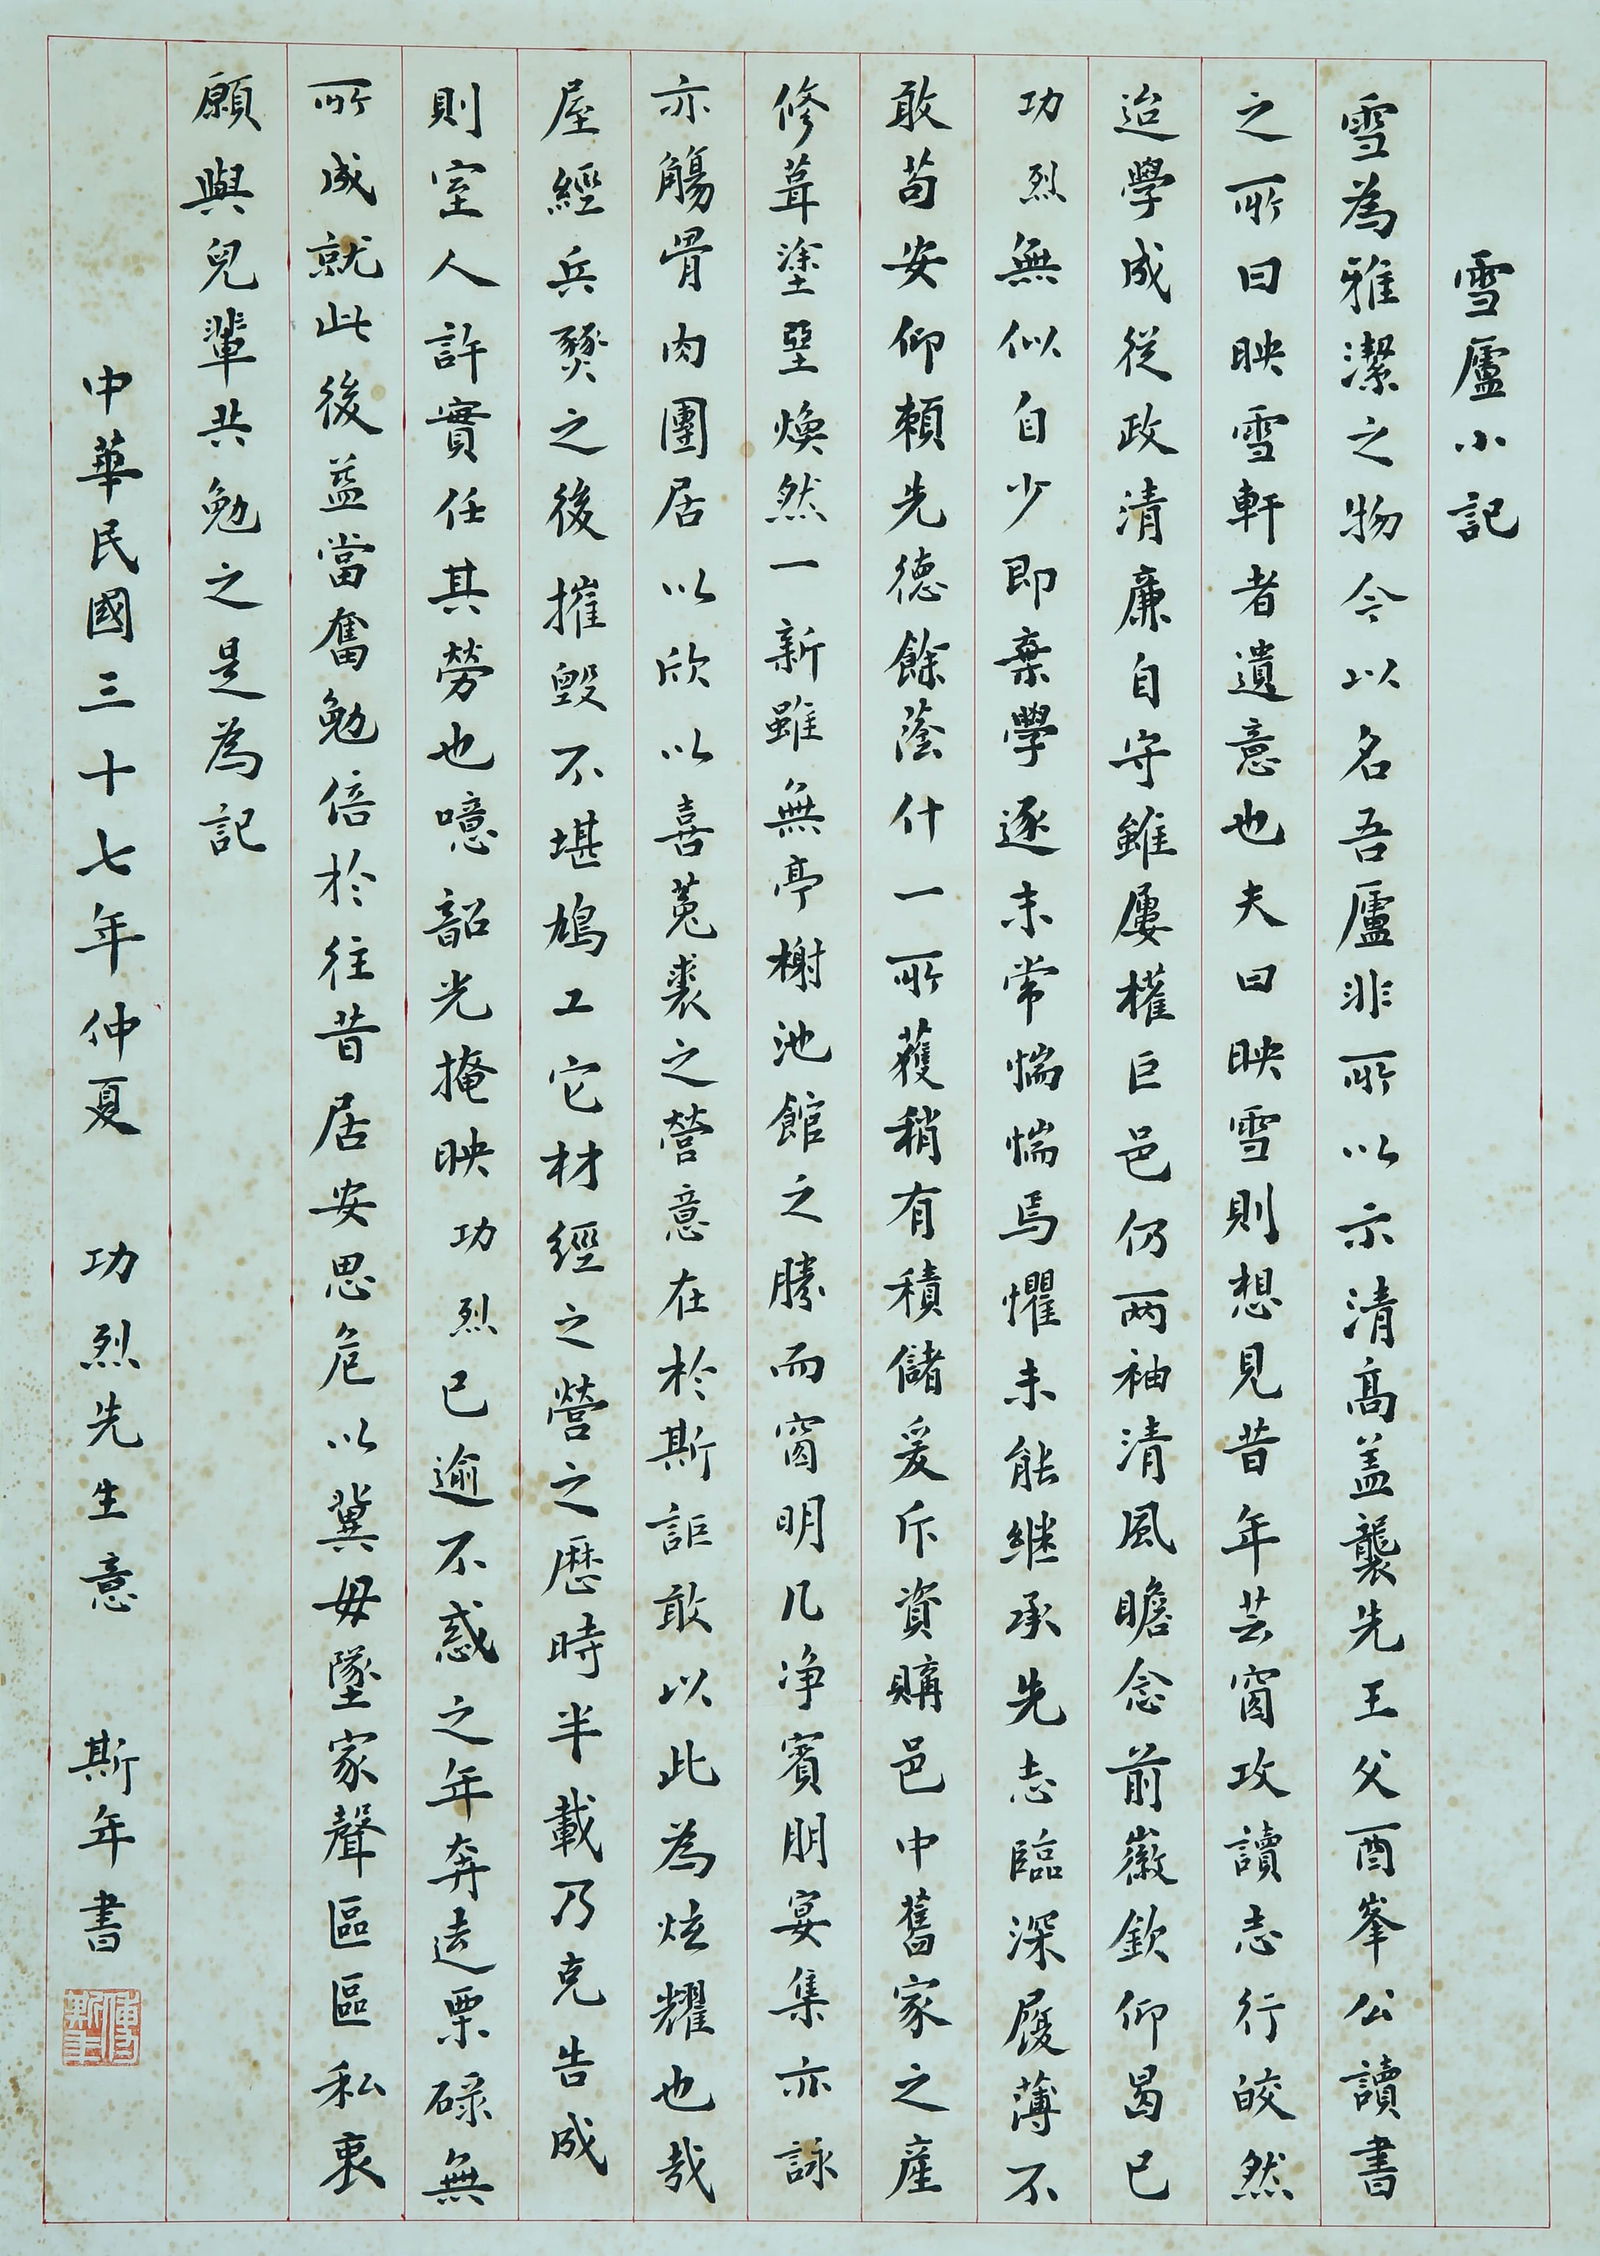 雪廬小記
雪為雅潔之物今以名吾廬非所以示清高盖襲先王父酉峯公讀書
之所曰映雪軒者遺意也夫曰映雪則想見昔年芸窗攻讀志行皎然
迨學成從政清廉自守雖屢權巨邑仍兩袖清風瞻念前徽欽仰曷已
功烈無似自少即棄學逐末常惴惴焉懼未能繼承先志臨深履薄不
敢苟安仰賴先德餘蔭什一所獲稍有積儲爰斥資購邑中舊家之產
修葺塗堊煥然一新雖無亭榭池館之勝而窗明几净賓朋宴集亦詠
亦觴骨肉團居以欣以喜菟裘之營意在於斯詎敢以此為炫耀也哉
屋經兵燹之後摧毀不堪鳩工它材經之營之歷時半載乃克告成
則室人許實任其勞也噫韶光掩映功烈已逾不惑之年奔走栗碌無
所成就此後益當奮勉倍於往昔居安思危以冀毋墜家聲區區私衷
願與兒輩共勉之是為記
中華民國三十七年仲夏 功烈先生意 斯年書
傅斯年